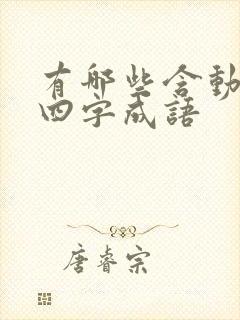 有哪些含动
四字成語
唐睿宗